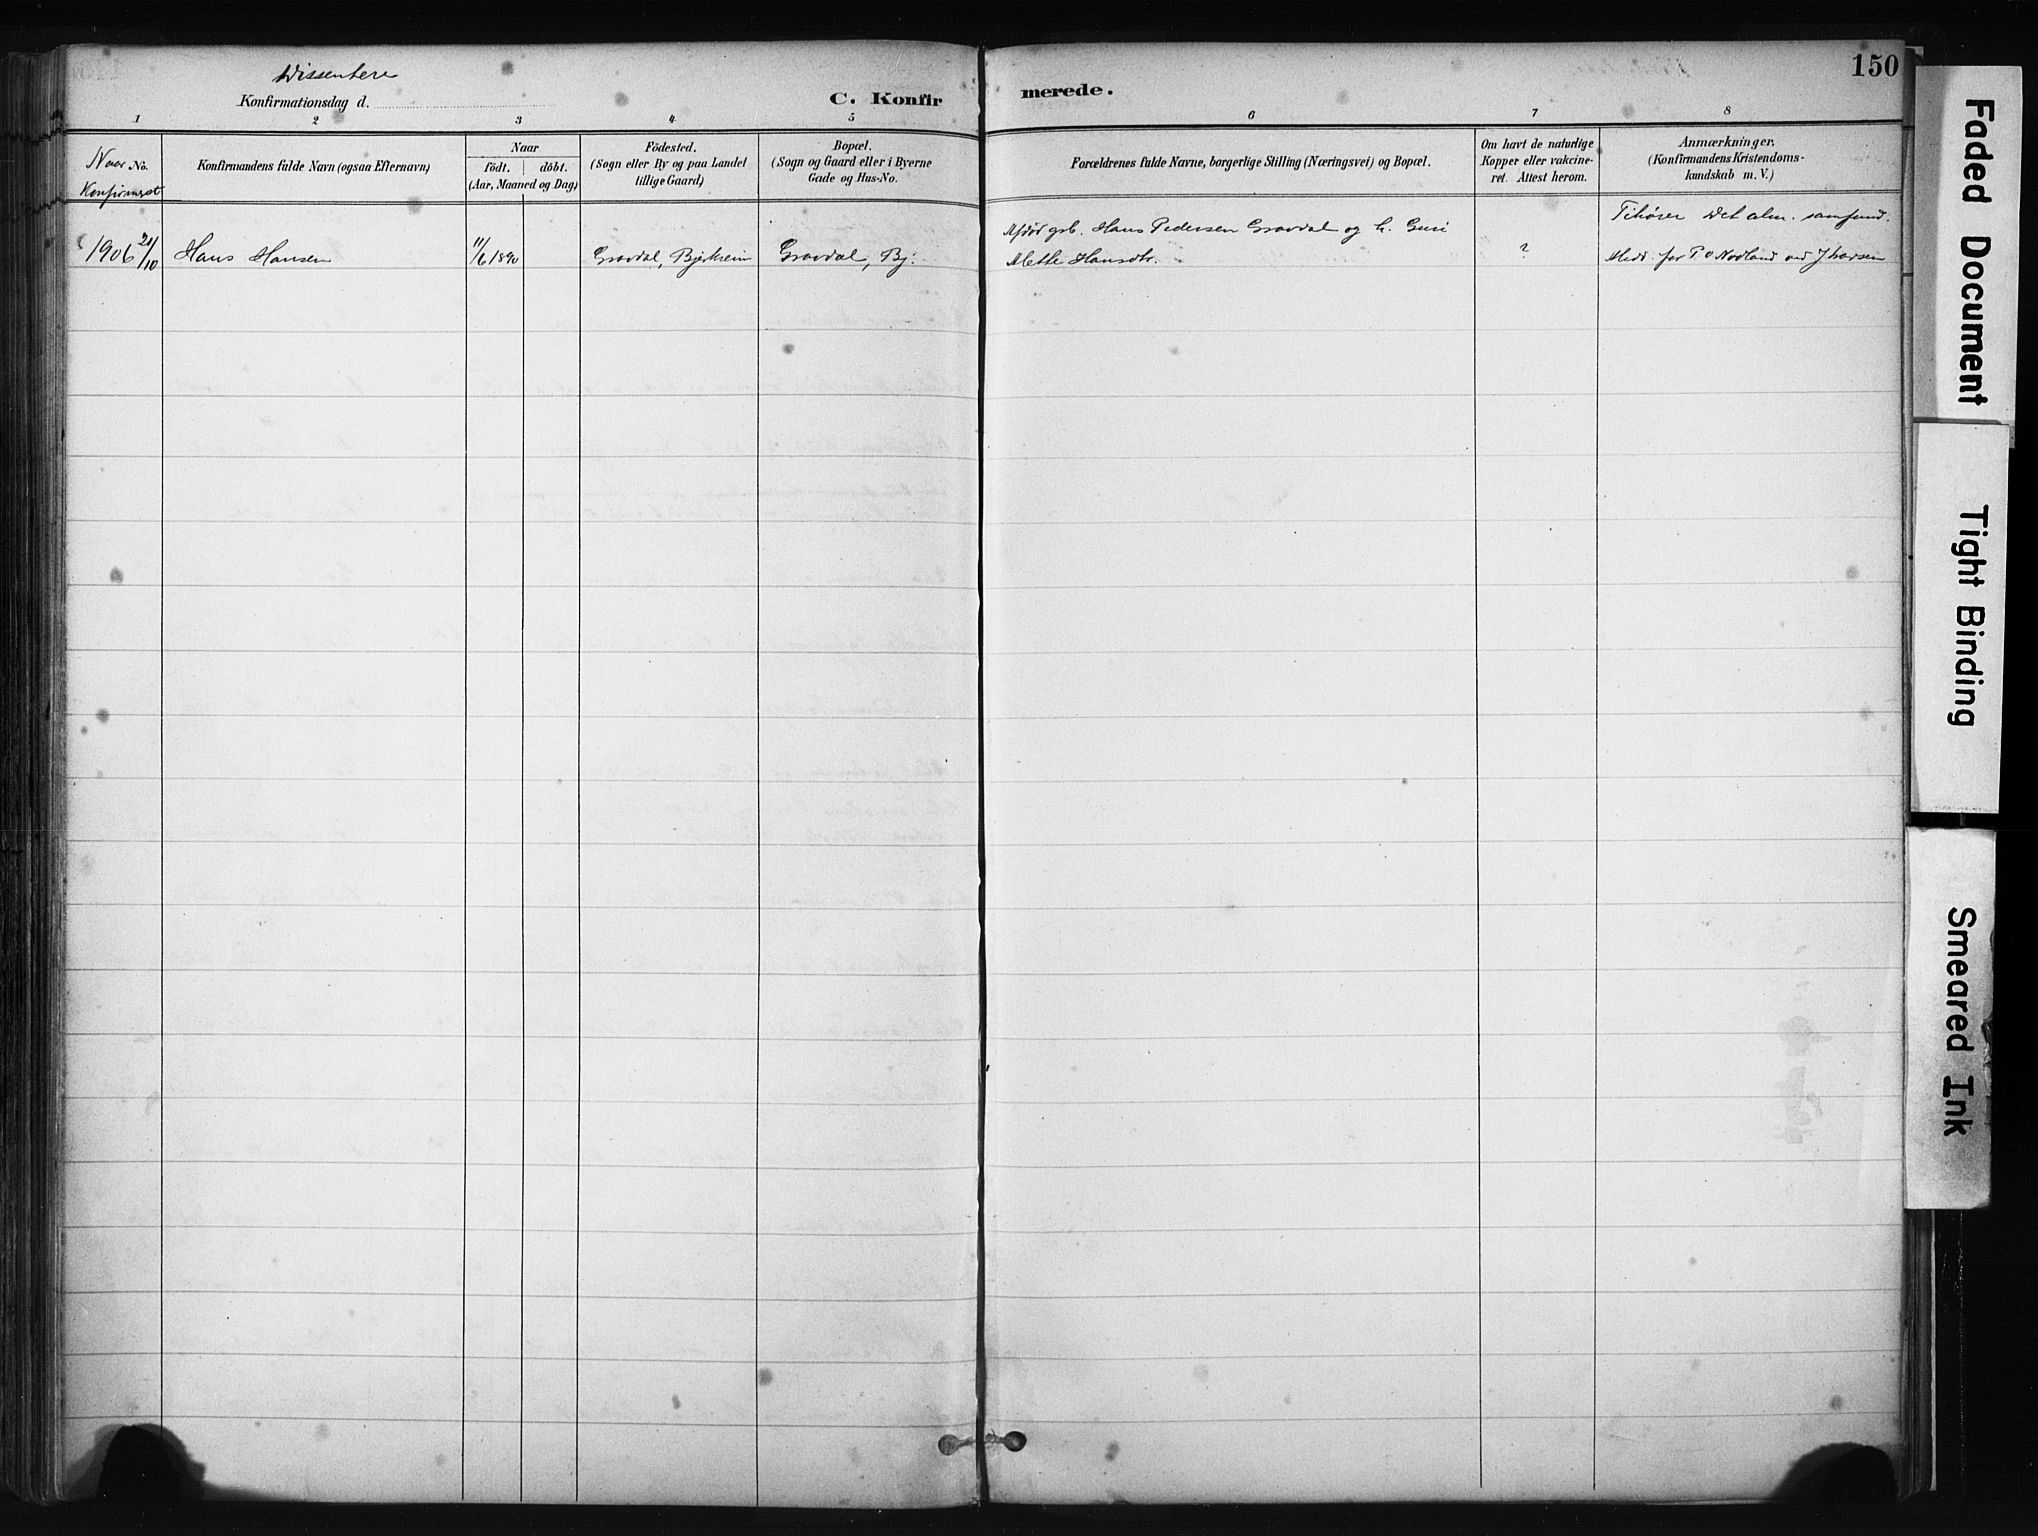 Dissentere
150
Konfirmationsdag d.
C. Konfir
merede.
1 2 3 4 5 6 7 8
Naar No.
Konfirmeret
Konfirmandens fulde Navn (ogsaa Efternavn)
Naar
födt. döbt.
(Aar, Maaned og Dag)
Födested.
(Sogn eller By og paa Landet
tillige Gaard)
Bopæl.
(Sogn og Gaard eller i Byerne
Gade og Hus-No.
Forældrenes fulde Navne, borgerlige Stilling (Næringsvei) og Bopæl.
Om havt de naturlige
Kopper eller vakcine-
ret. Attest herom.
Anmærkninger.
(Konfirmandens Kristendoms-
kundskab m. V.)
1906 21/10
Hans Hansen
11/6 1890
Gravdal, Bjerkreim
Gravdal, Bj:
Afdød grb. Hans Pedersen Gravdal og h. Guri
Mette Hansdtr.
?
Tihører Det alm. samfund.
Medd. for P O Nodland ved J
Faded Document
Tight Binding
Smeared Ink